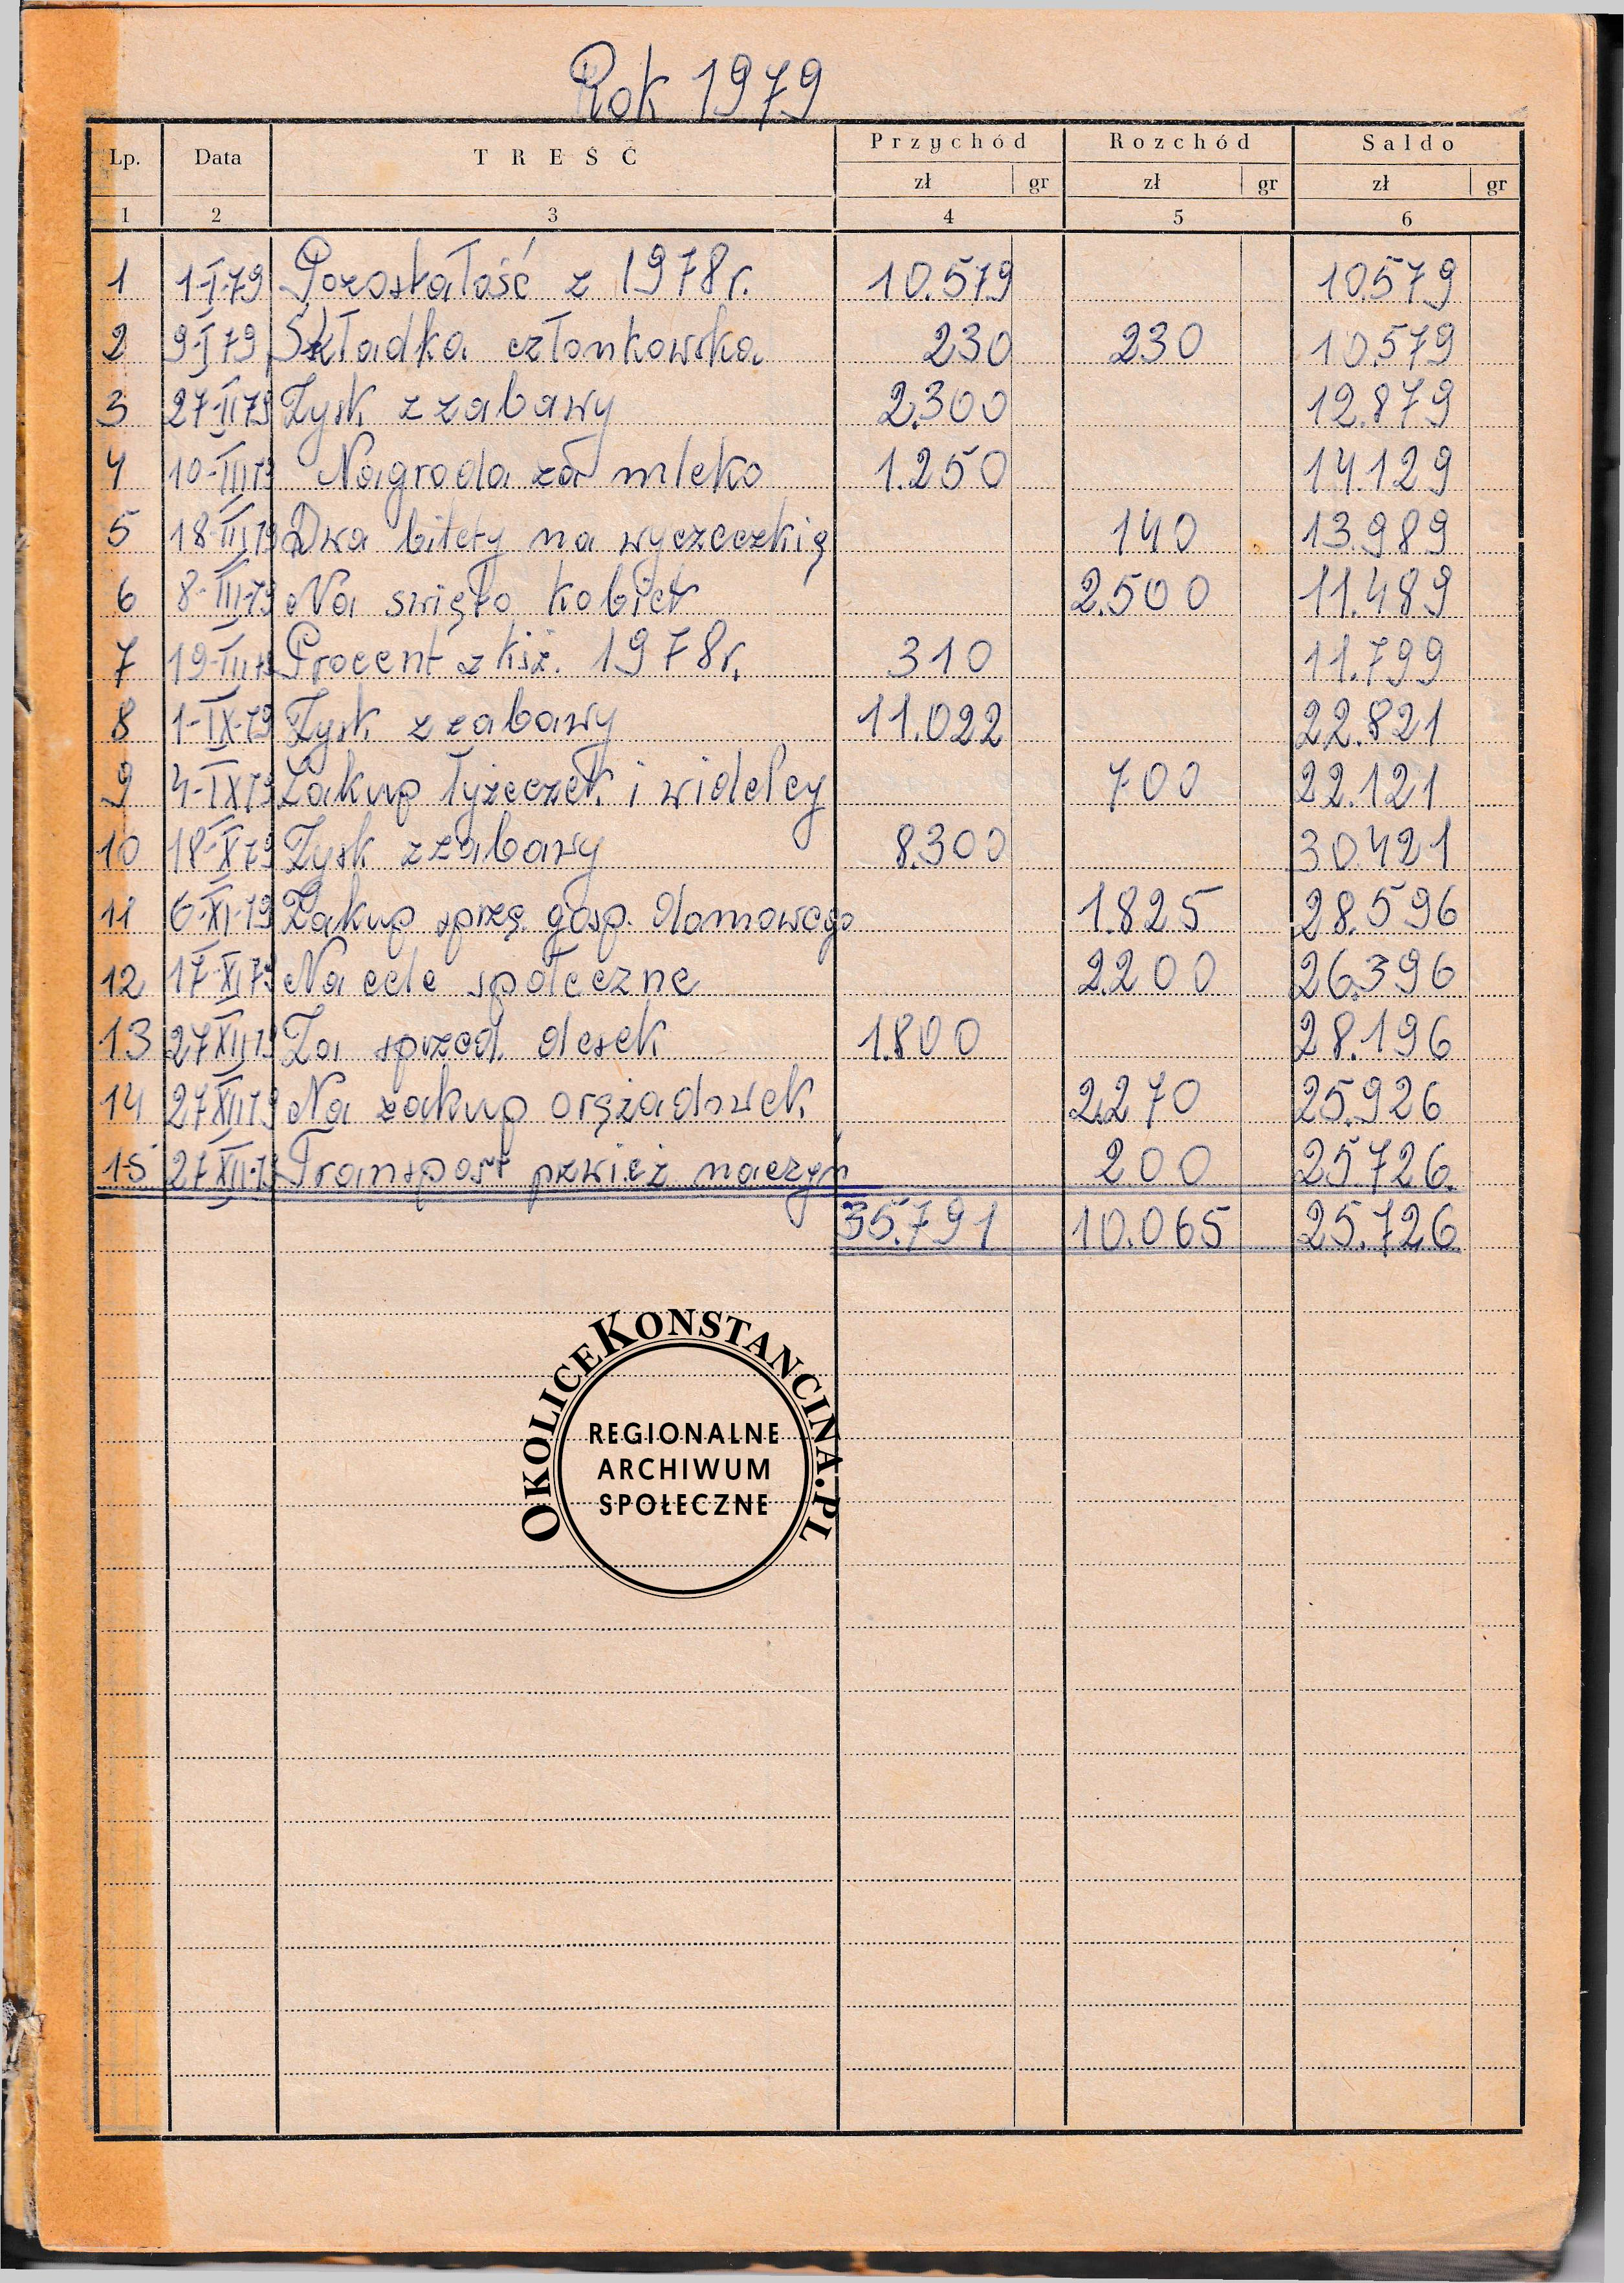 Rok 1979
Lp. Data TREŚĆ Przychód Rozchód Saldo
zł gr zł gr zł gr
1 2 3 4 5 6
1 1-I-79 Pozoskałość z 1978r. 10.579 10.579
2 9-I-79 Składka członkowska 230 230 10.579
3 27-II-79 Zysk z zabawy 2.300 12.879
4 10-III-79 Nagroda za mleko 1.250 14.129
5 18-III-79 Dwa bilety na wyczeczkię 140 13.989
6 8-III-79 Na swięto kobiet 2.500 11.489
7 19-III-79 Procent z ksż. 1978r. 310 11.799
8 1-IX-79 Zysk z zabawy 11.022 22.821
9 4-IX-79 Zakup łyżeczek i widelcy 700 22.121
10 18-X-79 Zysk z zabawy 8.300 30.421
11 6-XI-79 Zakup sprzę. gosp. domowego 1.825 28.596
12 17-XI-79 Na cele społeczne 2.200 26.396
13 27 XII 79 Za sprzed. desek 1.800 28.196
14 27 XII 79 Na zakup orężadówek 2.270 25.926
15 27 XII-79 Transport przwież naczyń 200 25.726.
35.791 10.065 25.726
OKOLICEKONSTANCINA.PL
REGIONALNE
ARCHIWUM
SPOŁECZNE